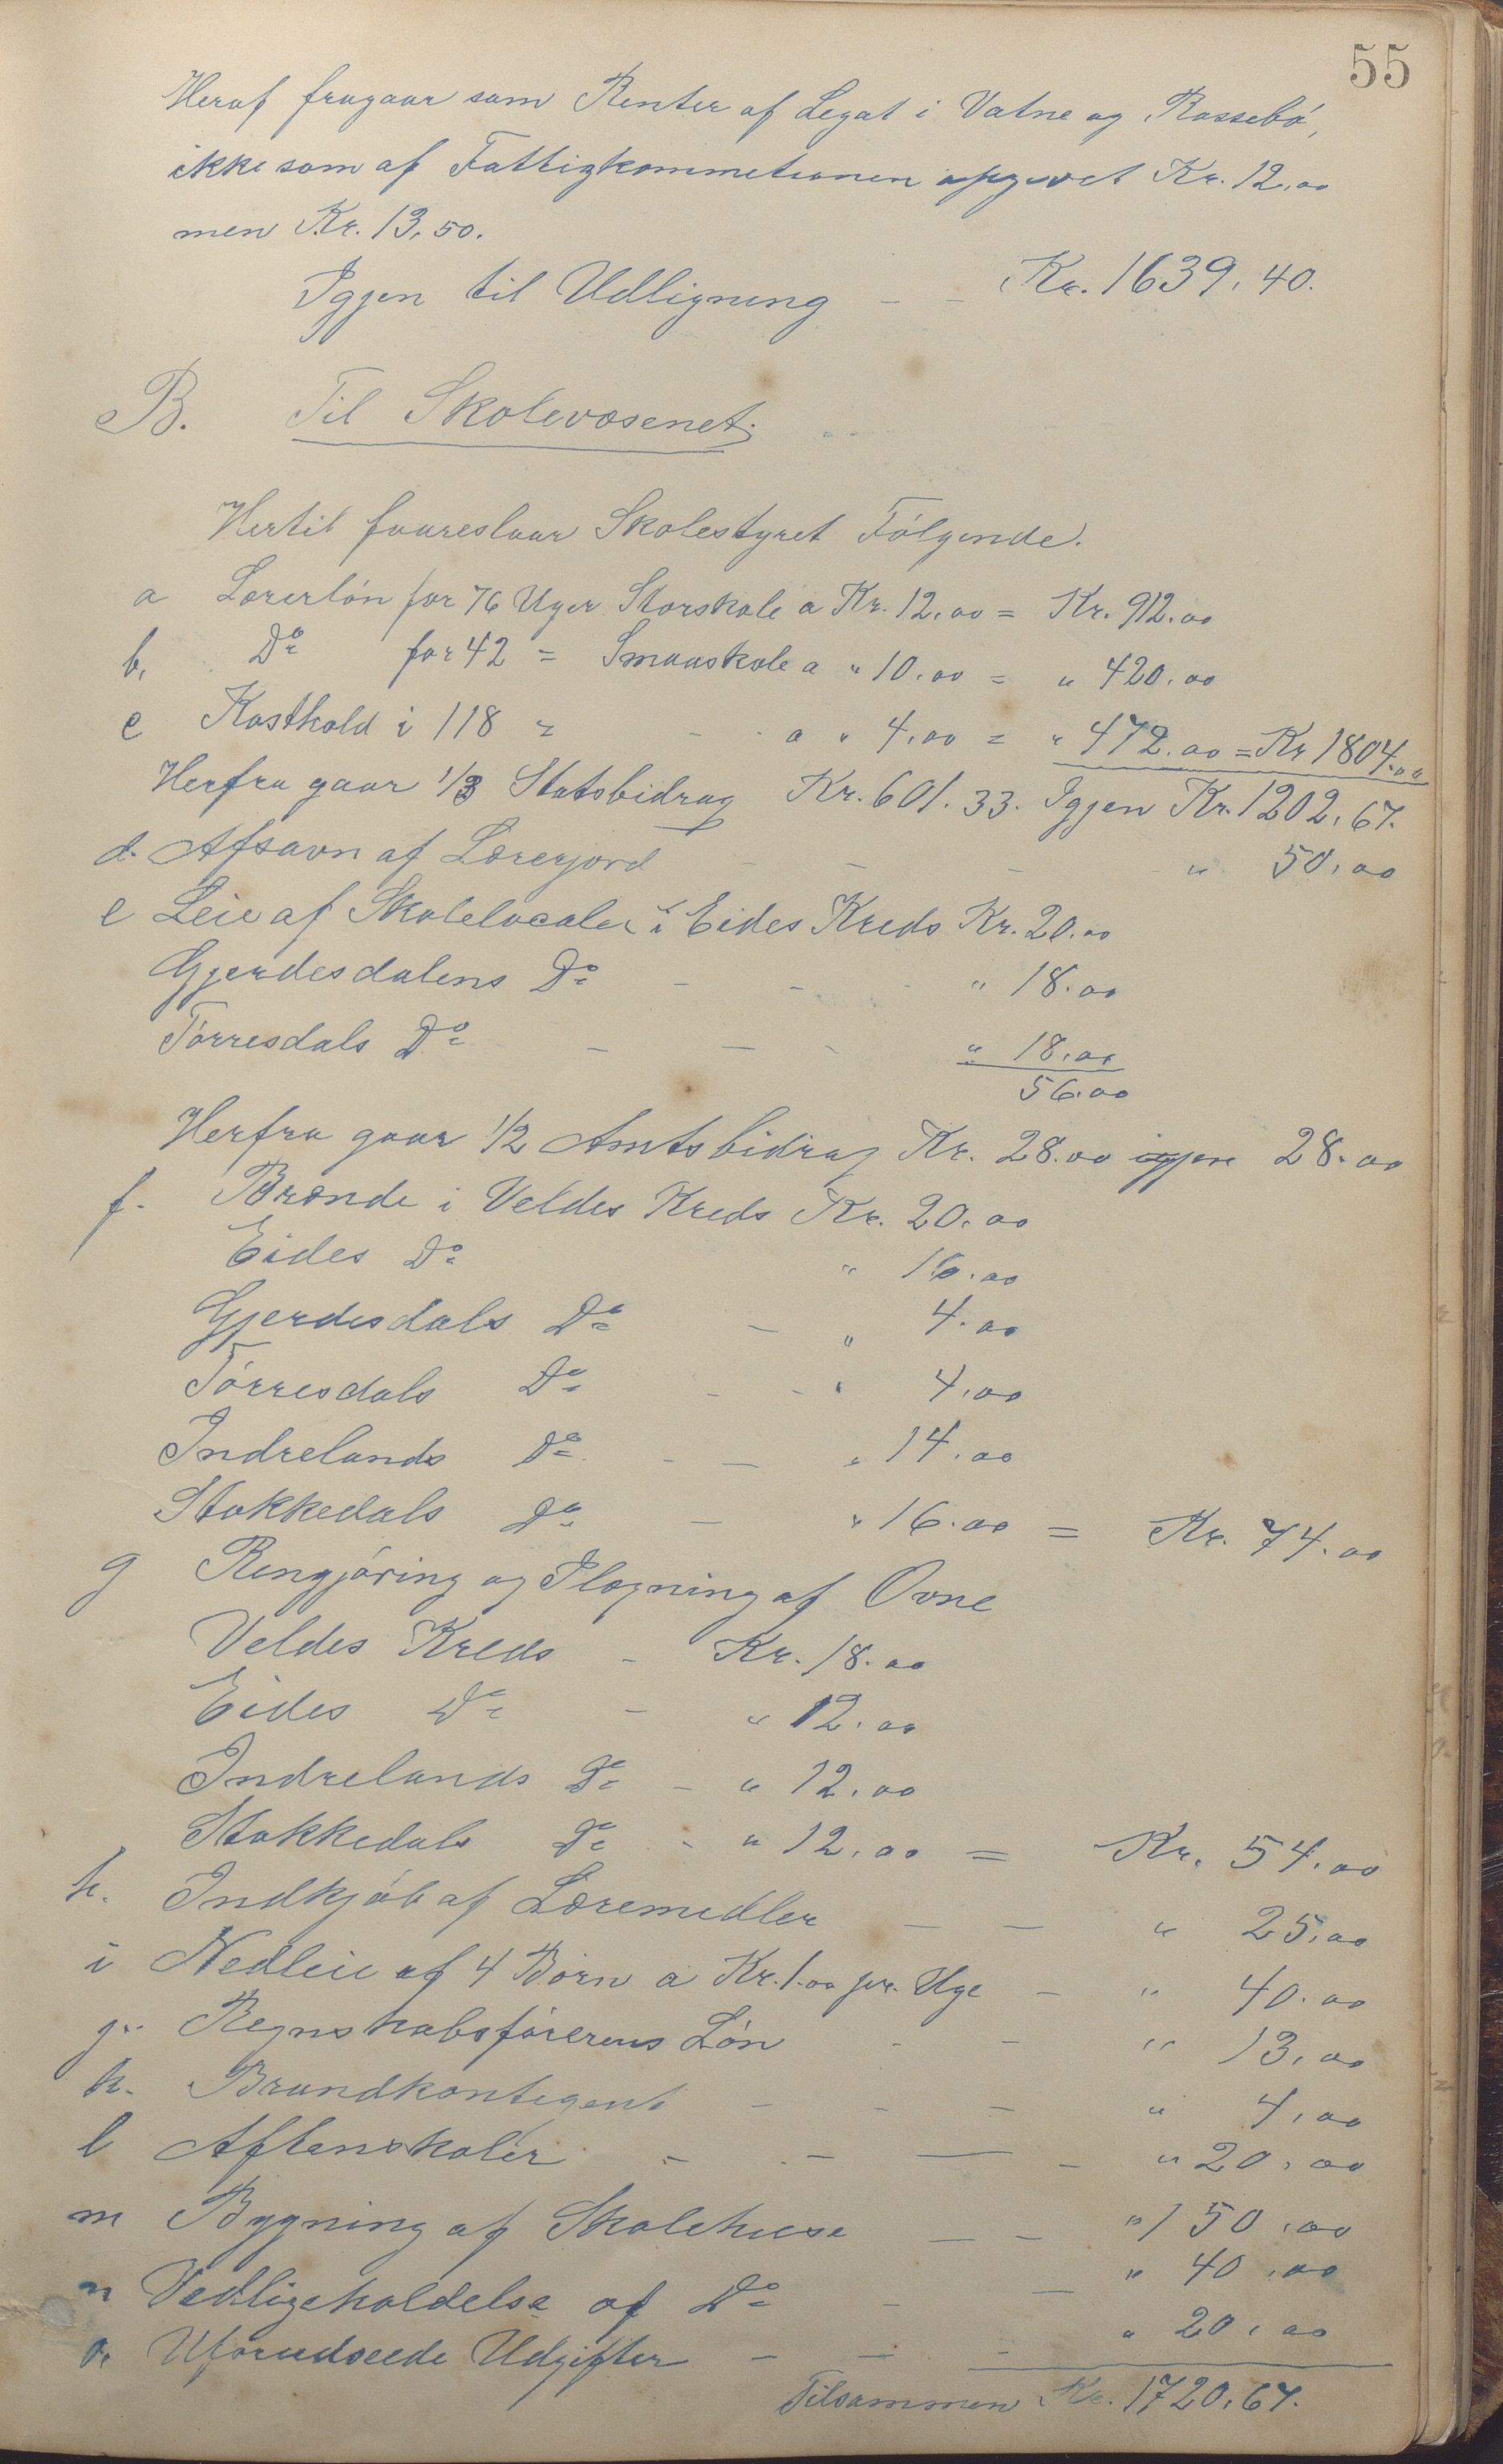 55
Heraf fragaar som Renter af Legat i Vatne og Rossebö,
ikke som af Fattigkommetionen opgivet Kr. 12,00
men Kr. 13,50.
Igjen til Udligning – – Kr. 1639,40.
B. Til Skolevæsenet;
Hertil foureslaar Skolestyret Fölgende.
a Lærerlön for 76 Uger Storskole a Kr. 12,00 = Kr. 912.00
b, Do for 42 = Smaaskole a " 10.00 = " 420.00
c Kosthold i 118 = - - a " 4,00 = " 472.00 = Kr 1804.00
Herfra gaar 1/3 Statsbidrag Kr. 601.33. Igjen Kr. 1202,67.
d. Afsavn af Lærerjord – – – " 50,00
e Leie af Skolelocaler i Eides Kreds Kr. 20.00
Gjerdesdalens Do - - - " 18.00
Törresdals Do – – - " 18,00
56.00
Herfra gaar 1/2 Amtsbidrag Kr. 28.00 igjen 28.00
f. Brænde i Veldes Kreds Kr. 20,00
Eides Do " 16.00
Gjerdesdals Do – " 4.00
Törresdals Do - - " 4,00
Indrelands Do. - – " 14.00
Stokkedals Do – " 16.00 = Kr. 74.00
g Rengjöring og Plægning af Ovne
Veldes Kreds - Kr. 18.00
Eides Do - " 12.00
Indrelands Do - " 12,00
Stokkedals Do - " 12,00 = Kr. 54,00
h. Indkjöb af Læremidler – – " 25,00
i Nedleie af 4 Börn a Kr. 1.00 pr. Uge – " 40.00
j. Regnskabsförerens Lön - - " 13,00
k. Brandkontigent – - – " 4,00
l Aftenskoler - - — - " 20,00
m Bygning af Skolehuse – – " 150,00
n Vedligeholdelse af Do - — " 40,00
o. Uforudseede Udgifter – – - " 20,00
Tilsammen Kr. 1720,67.